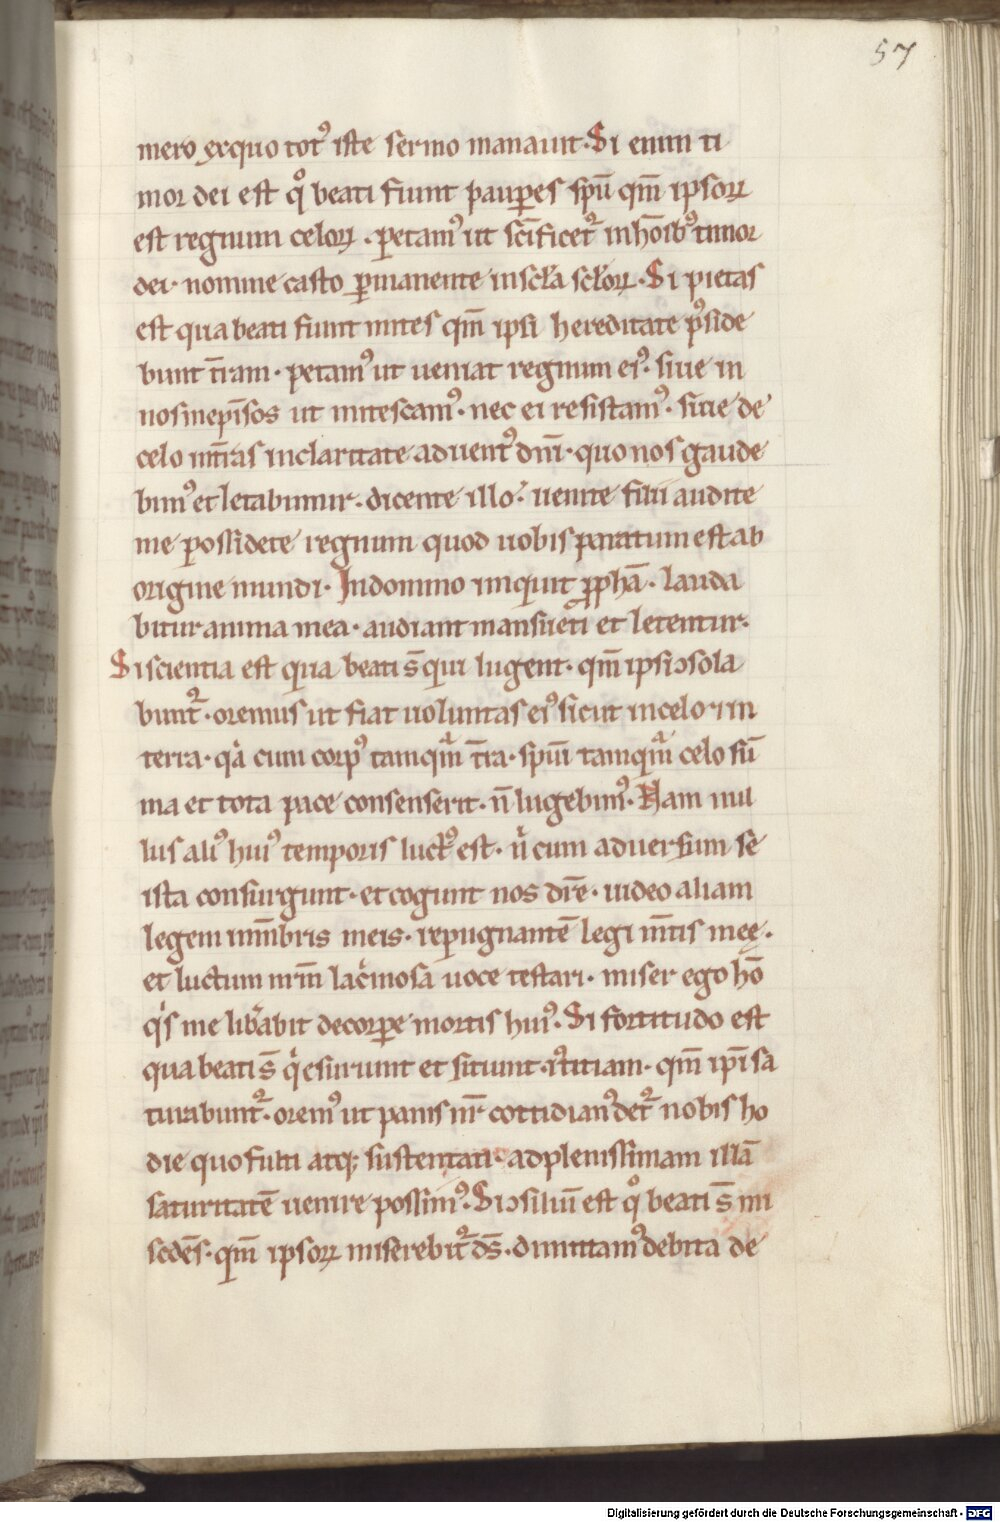 57
mero exquo totꝰ iste sermo manauit. Si enim ti
mor dei est qͦ beati fiunt pauꝑes spū qm̄ ipsoꝝ
est regnum celoꝝ. petamꝰ ut scīficet᷑ inhoībꝰ timor
dei. nomine casto ꝑmanente inscl̄a scl̄oꝝ. Si pietas
est qua beati fiunt mites qm̄ ipsi hereditate pꝰside
bunt tr̄am. petamꝰ ut ueniat regnum eiꝰ. siue in
nosmepīsos ut mitescamꝰ. nec ei resistamꝰ. siue de
celo intr̄as inclaritate aduentꝰ dnī. quo nos gaude
bimꝰ et letabimur. dicente illo. uenite filii audite
me possidete regnum quod uobis paratum est ab
origine mundi. Indomino inquit ꝓphā. lauda
bitur anima mea. audiant mansueti et letentur.
Si scientia est qua beati s̄ qui lugent. qm̄ ipsi ↄsola
bunt᷑. oremus ut fiat uoluntas eiꝰ sicut incelo ⁊ in
terra. qͣ cum corpꝰ tamqͣm tr̄a. spiū tamqͣm celo sū
ma et tota pace consenserit. n̄ lugebimꝰ. Nam nul
lus aliꝰ huiꝰ temporis luctꝰ est. nͥ cum aduersum se
ista consurgunt. et cogunt nos dīre. uideo aliam
legem inmēbris meis. repugnantē legi m̄tis meę.
et luctum nr̄m lacͥmosa uoce testari. miser ego hō
qͥs me lib̄abit decorꝑe mortis huiꝰ. Si fortitudo est
qua beati s̄ qͥ esuriunt et sitiunt iꝰtitiam. qm̄ ipī sa
turabunt᷑. oremꝰ ut panis nr̄ cottidianꝰ det᷑ nobis ho
die quo fulti atqꝫ sustentati. adplenissimam illā
saturitatē uenire possimꝰ. Si ↄsiliū est qͦ beati s̄ mi
scdēs. qm̄ ipsoꝝ miserebit᷑ ds̄. dimittamꝰ debita de
Digitalisierung gefördert durch die Deutsche Forschungsgemeinschaft - DFG